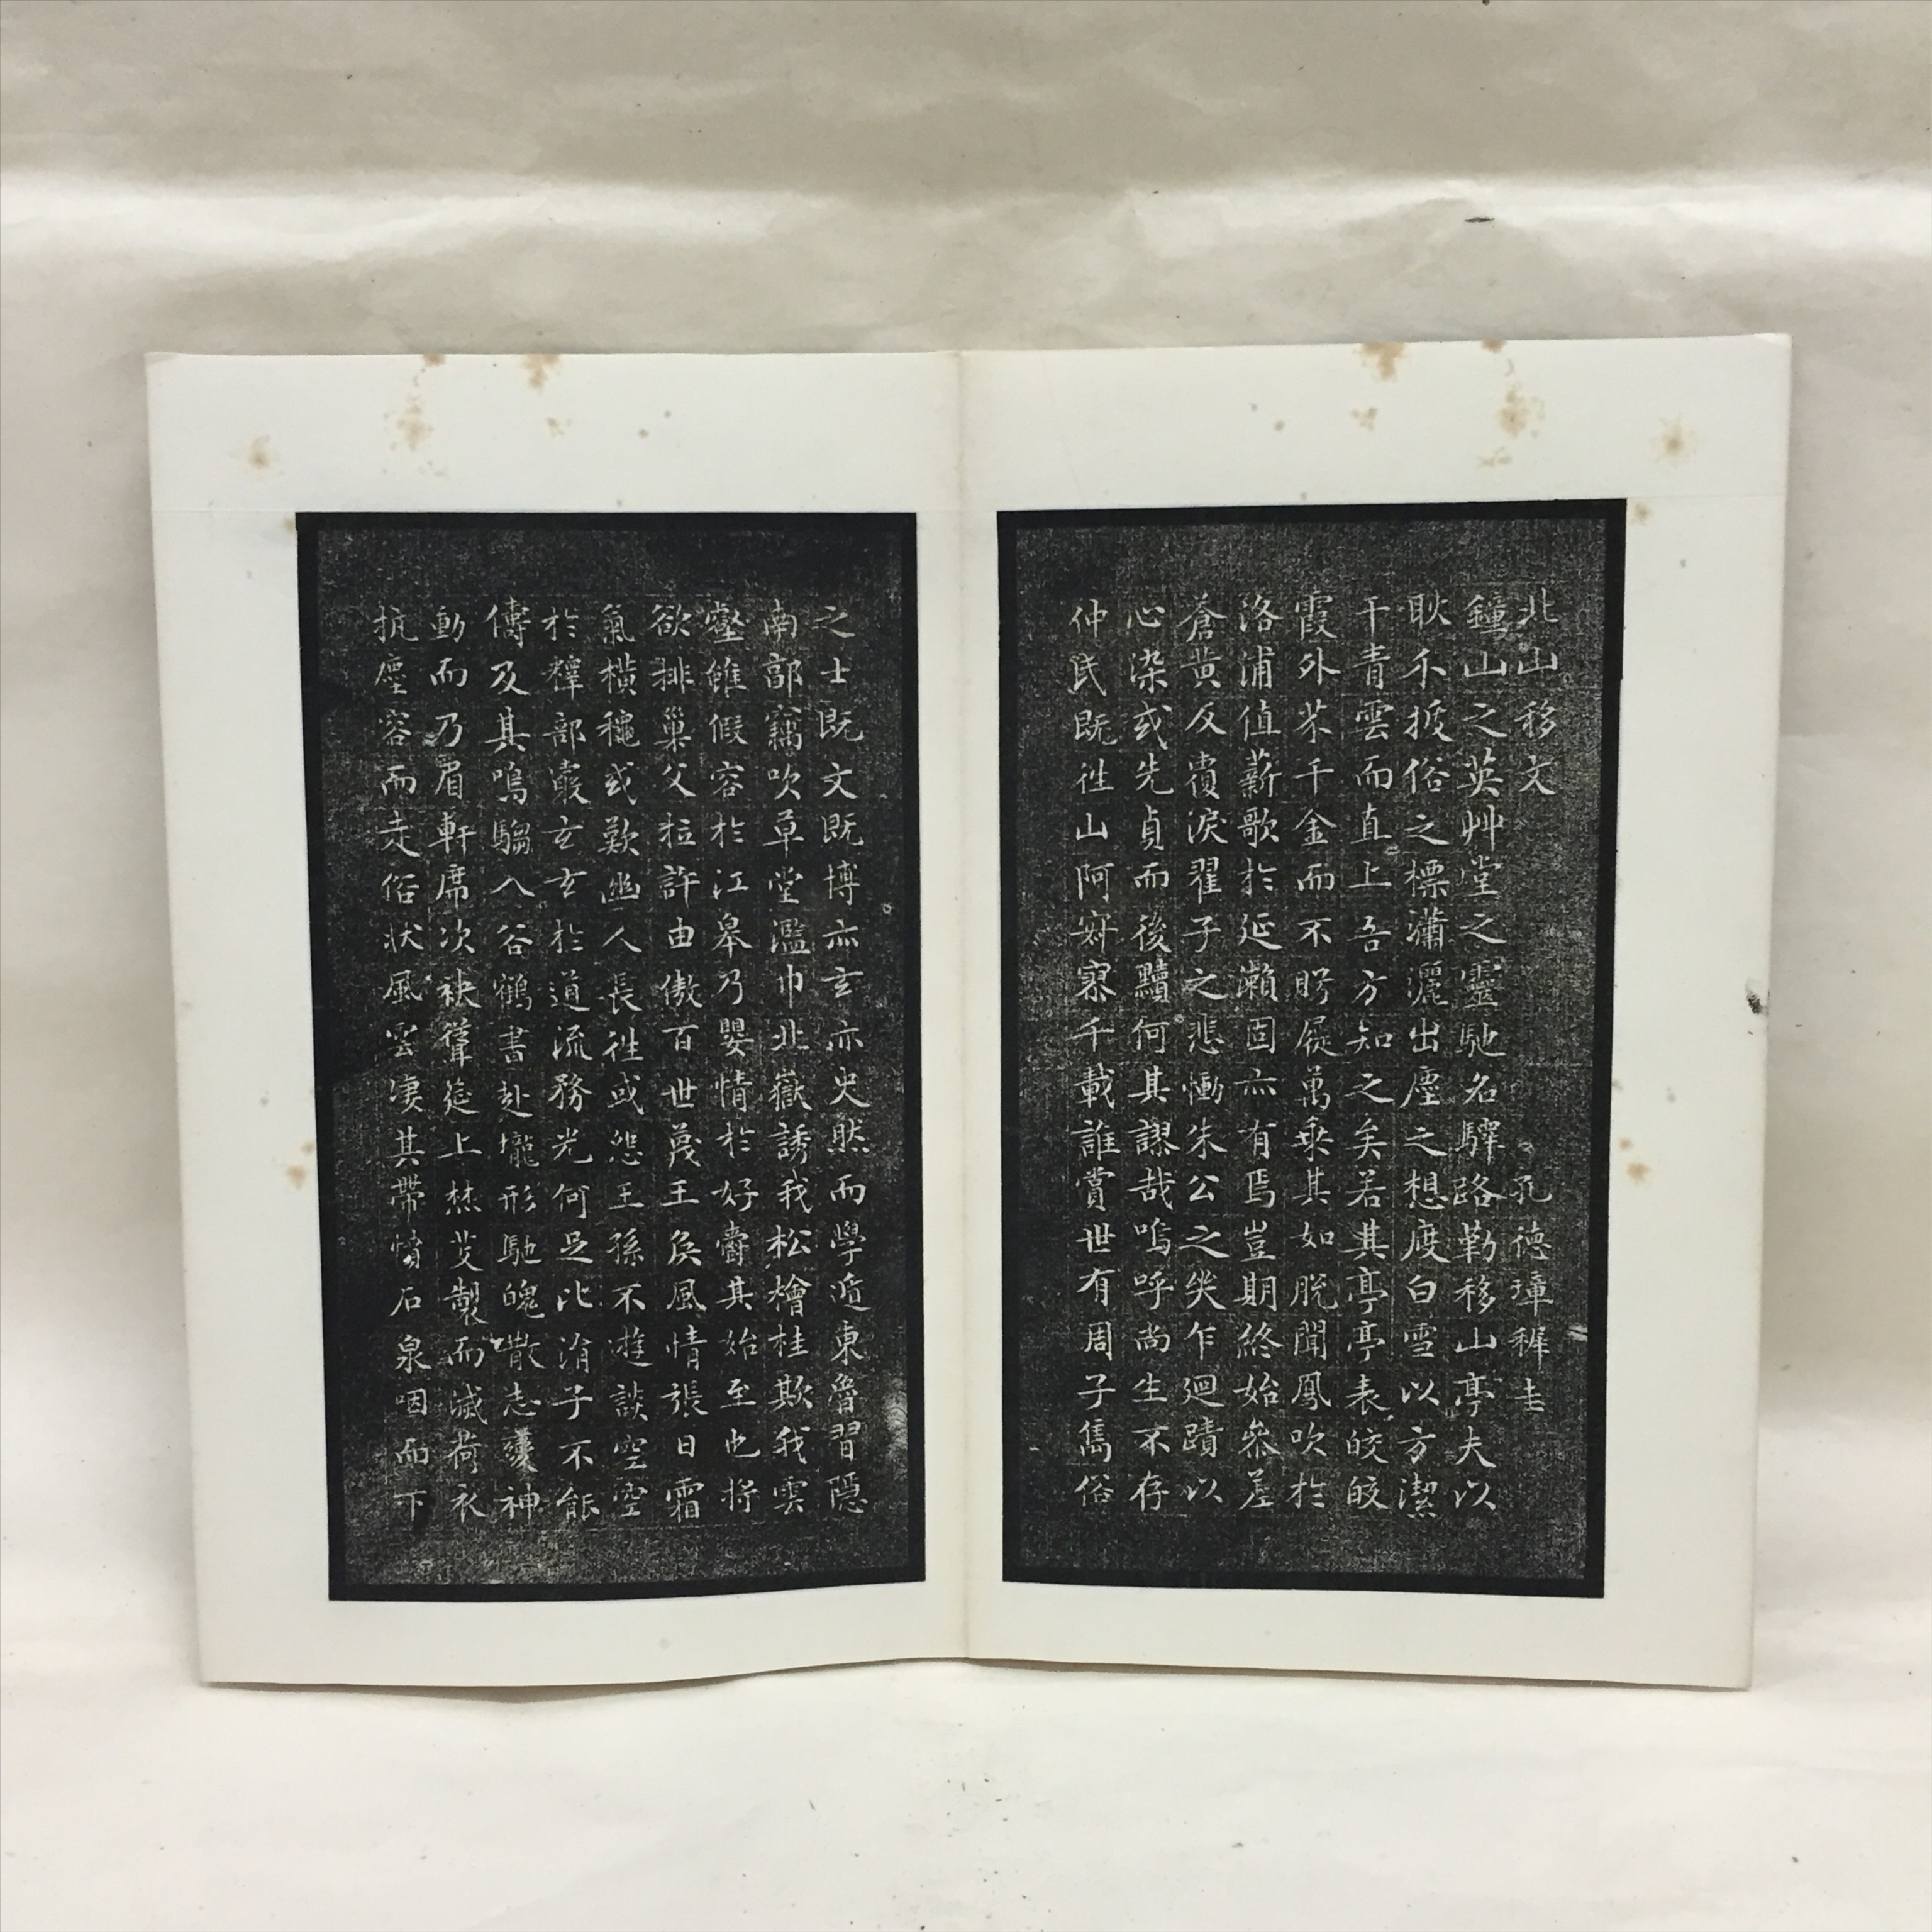 北山移文
孔德璋稺圭
鐘山之英艸堂之靈馳名驛路勒移山亭夫以
耿介拔俗之標瀟灑出塵之想度白雪以方潔
干青雲而直上吾方知之矣若其亭亭表皎皎
霞外芥千金而不眄屣萬乘其如脫聞鳳吹於
洛浦值薪歌於延瀨固亦有焉豈期終始參差
蒼黃反覆淚翟子之悲慟朱公之哭乍迴蹟以
心染或先貞而後黷何其謬哉嗚呼尚生不存
仲氏既往山阿寂寥千載誰賞世有周子雋俗
之士既文既博亦玄亦史然而學遁東魯習隱
南郭竊吹草堂濫巾北嶽誘我松檜桂欺我雲
壑雖假容於江皋乃嬰情於好爵其始至也將
欲排巢父拉許由傲百世蔑王侯風情張日霜
氣橫穐或歎幽人長往或怨王孫不遊談空空
於釋部覈玄玄於道流務光何足比涓子不能
儔及其鳴騶入谷鶴書赴壠形馳魄散志變神
動而乃眉軒席次袂聳筵上焚芰製而滅荷衣
抗塵容而走俗狀風雲淒其帶憤石泉咽而下